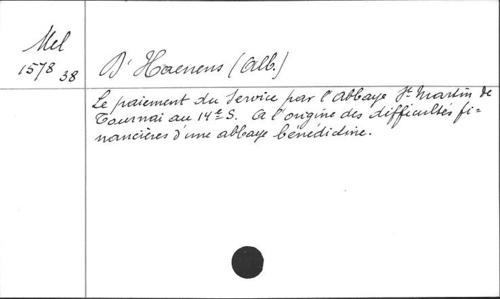 Mel
1578 38
D'Haenens (Alb.)
Le paiement du Service par l'Abbaye St Martin de
Tournai au 14e S. A l'origine des difficultés fi-
nancières d'une abbaye bénédictine.